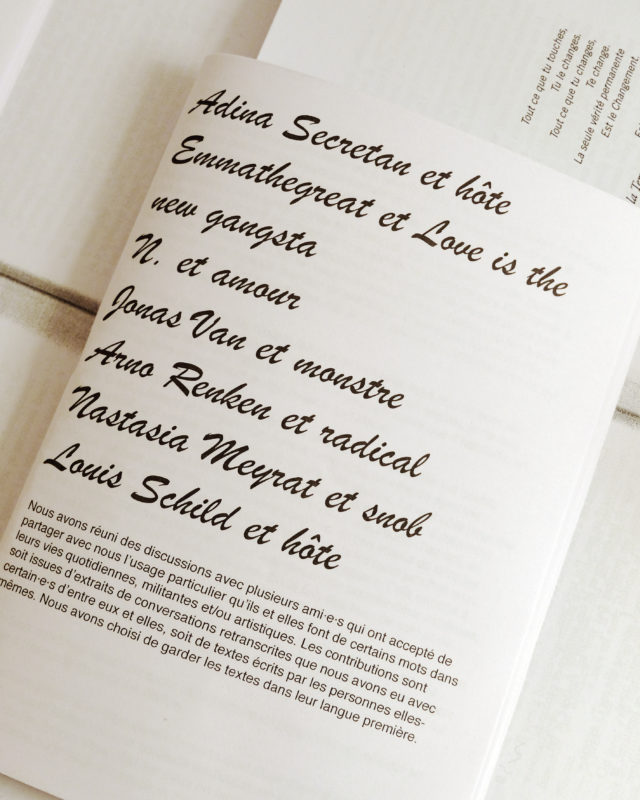 Adina Secretan et hôte
Emmathegreat et Love is the
new gangsta
N. et amour
Jonas Van et monstre
Arno Renken et radical
Nastasia Meyrat et snob
Louis Schild et hôte
Nous avons réuni des discussions avec plusieurs ami·e·s qui ont accepté de
partager avec nous l'usage particulier qu'ils et elles font de certains mots dans
leurs vies quotidiennes, militantes et/ou artistiques. Les contributions sont
soit issues d'extraits de conversations retranscrites que nous avons eu avec
certain·e·s d'entre eux et elles, soit de textes écrits par les personnes elles-
mêmes. Nous avons choisi de garder les textes dans leur langue première.
Tout ce que tu touches,
Tu le changes.
Tout ce que tu changes,
Te change.
La seule vérité permanente
Est le Changement.